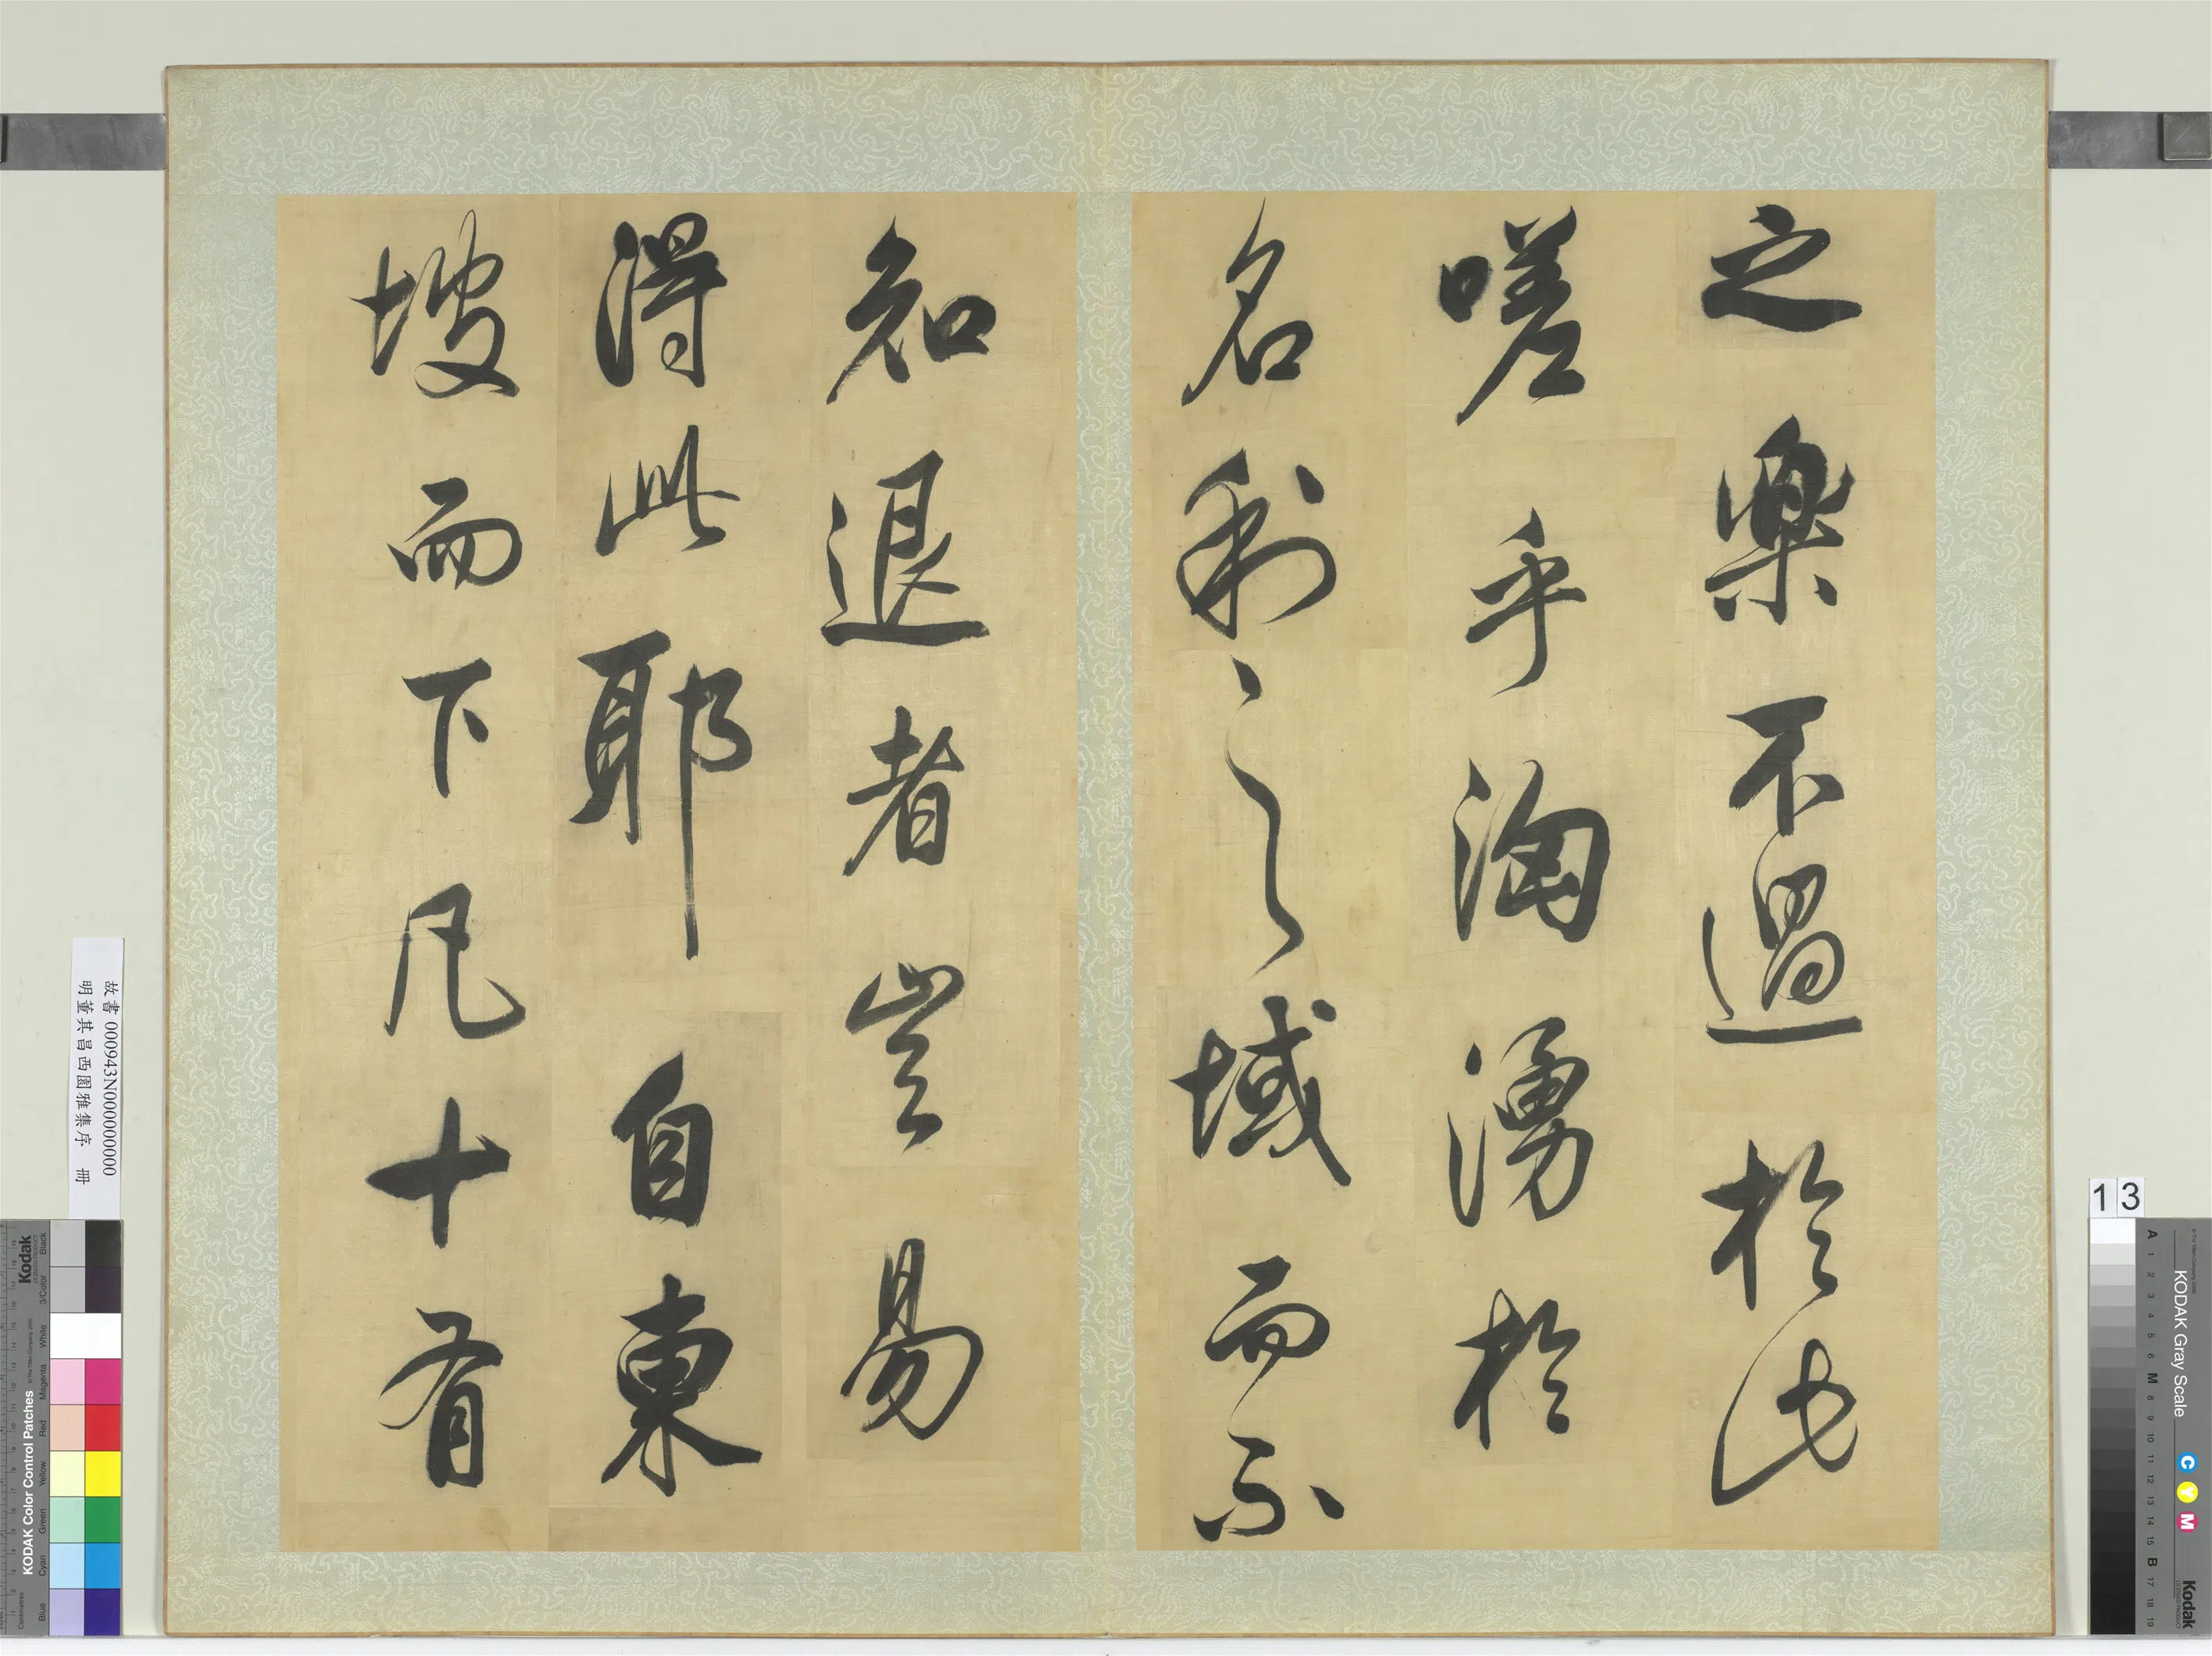 之樂不過於此
嗟乎洶湧於
名利之域而不
知退者豈易
得此耶自東
坡而下凡十有
故書 000943N000000000
明董其昌西園雅集序 冊
13
KODAK Gray Scale
C Y M
Kodak
A 1 2 3 4 5 6 M 8 9 10 11 12 13 14 15 B 17 18 19
Kodak
KODAK Color Control Patches
Blue Cyan Green Yellow Red Magenta White 3/Color Black
Centimetres